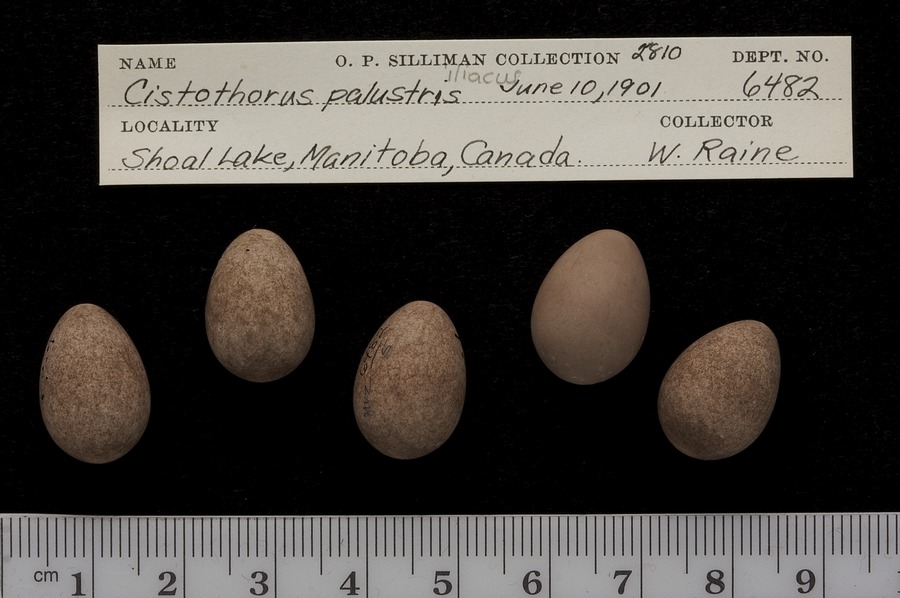 NAME O. P. SILLIMAN COLLECTION 2810 DEPT. NO.
iliacus
Cistothorus palustris June 10, 1901 6482
LOCALITY COLLECTOR
Shoal Lake, Manitoba, Canada. W. Raine
cm 1 2 3 4 5 6 7 8 9